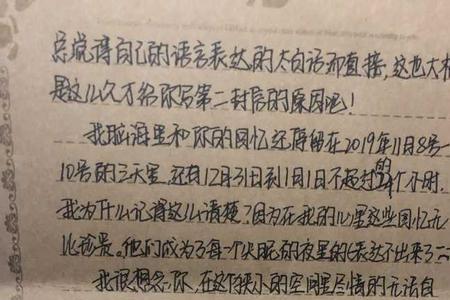 总觉得自己的语言表达的太白话而直接，这也大概
是这么久才给你写第二封信的原因吧！
我脑海里和你的回忆还停留在2019年11月8号一
10号的三天里，还有12月31日到1月1日不超过的24个小时，
我为什么记得这么清楚？因为在我的心里这些回忆无
比珍贵。他们成为了每一个失眠的夜里的表达不出来了一
我很想念你，在这个狭小的空间里尽情的无话自